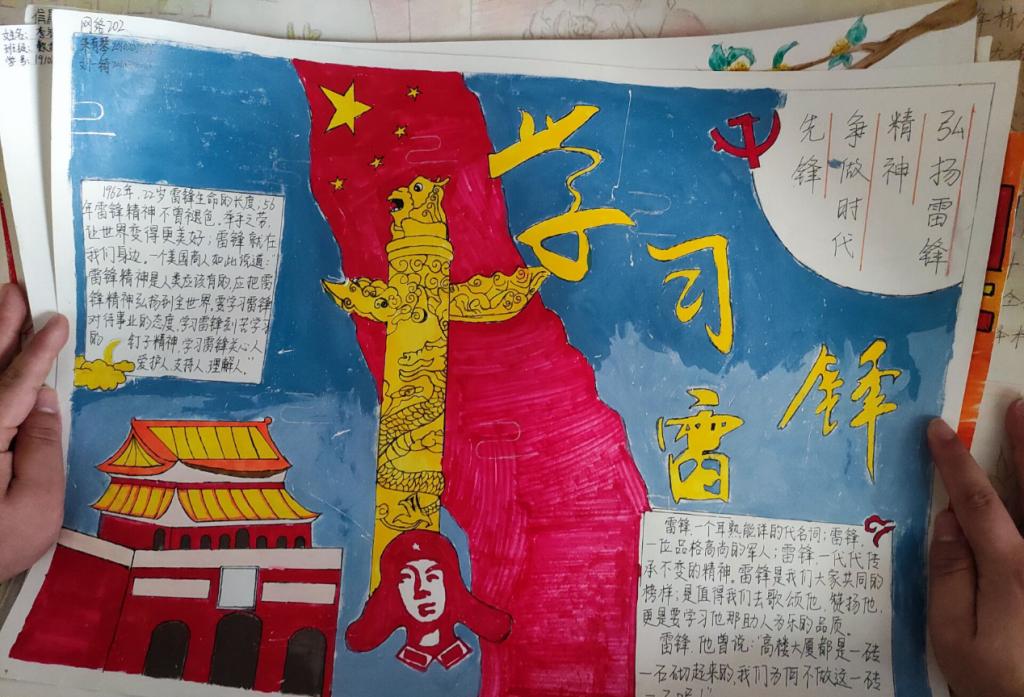 网络202
姓名:
班级:
学号:
弘扬雷锋
精神
争做时代
先锋
学习
雷锋
1962年,22岁雷锋生命的长度,56
年雷锋精神不曾褪色。举手之劳,
让世界变得更美好,雷锋就在
我们身边,一个美国商人如此说道:
雷锋精神是人类应该有的,应把雷
锋精神弘扬到全世界。要学习雷锋
对待事业的态度,学习雷锋刻苦学习
的 钉子精神,学习雷锋关心人
爱护人,支持人,理解人。”
雷锋一个耳熟能详的代名词;雷锋,
一位品格高尚的军人;雷锋,一代代传
承不变的精神。雷锋是我们大家共同的
榜样,是值得我们去歌颂他、赞扬他,
更是要学习他那助人为乐的品质。
雷锋,他曾说:“高楼大厦都是一砖
一石砌起来的,我们为何不做这一砖
一石呢!”